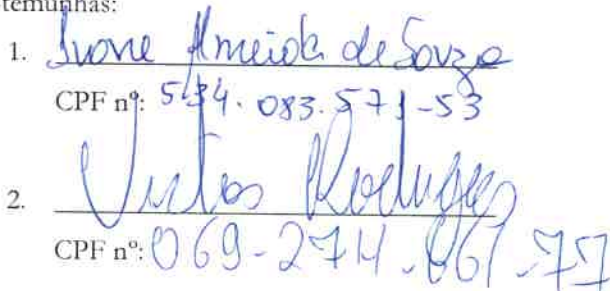 temunhas:
1. Ivone Almeida de Souza
CPF nº: 534.083.571-53
2. Victor Rodrigues
CPF nº: 069-274.061-77